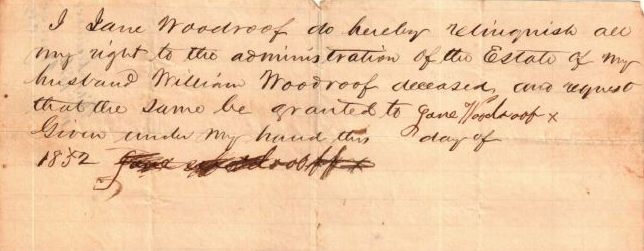 I Jane Woodroof do hereby relinquish all
my right to the administration of the Estate of my
husband William Woodroof deceased, and request
that the same be granted to Jane Woodroof x
Given under my hand this day of
1852 Jane Woodrooff x